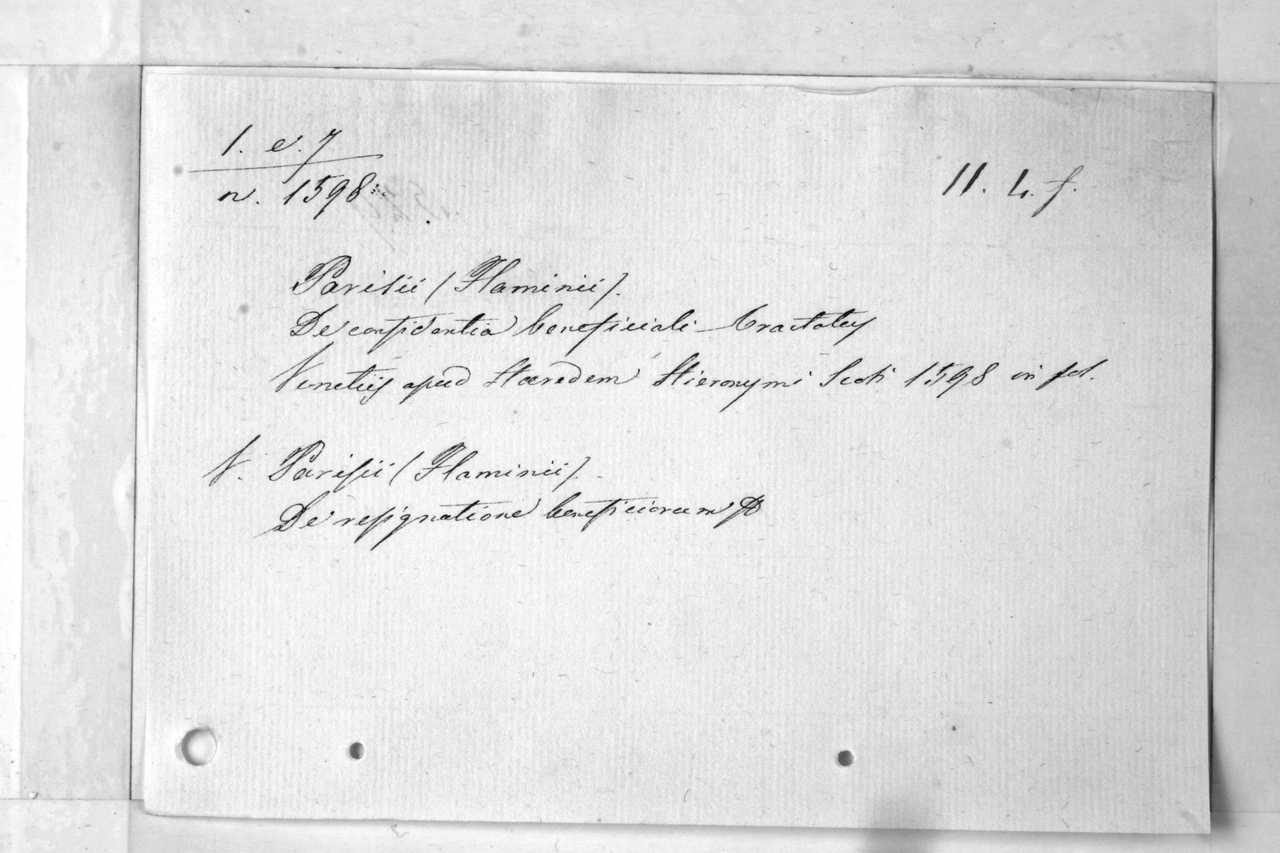 1. e. 7
n. 1598.
11. 4. f.
Parisii (Flaminii).
De confidentia beneficiali tractatus
Venetiis apud Hæredem Hieronymi Scoti 1598 in fol.
V. Parisii (Flaminii).
De resignatione beneficiorum